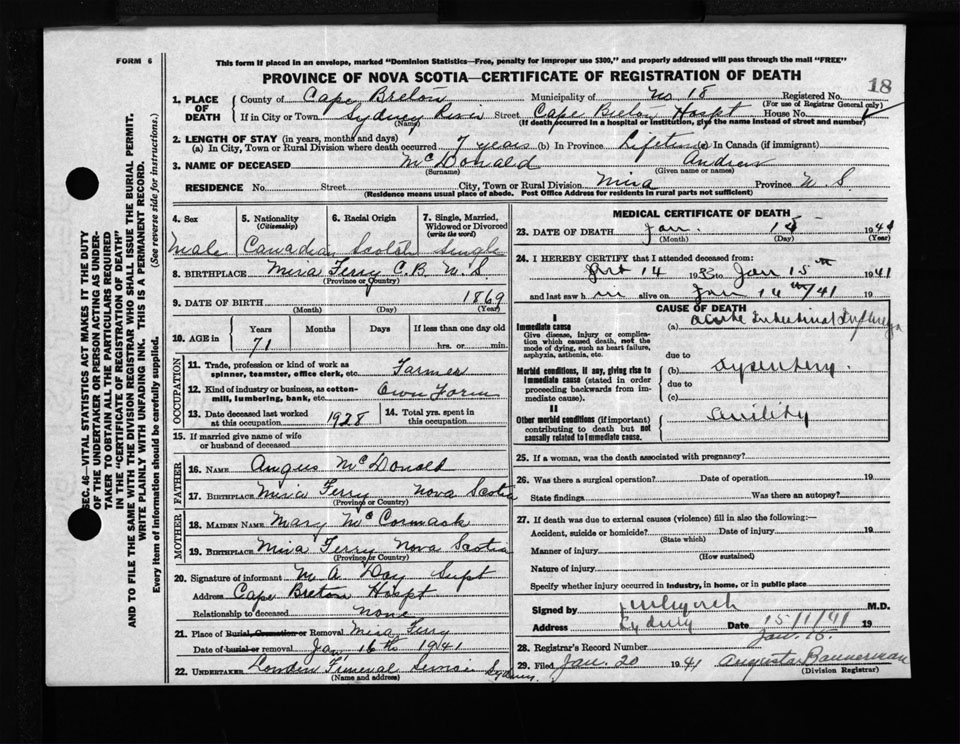 FORM 6
This form if placed in an envelope, marked "Dominion Statistics—Free, penalty for improper use $300," and properly addressed will pass through the mail "FREE"
PROVINCE OF NOVA SCOTIA—CERTIFICATE OF REGISTRATION OF DEATH
18
1. PLACE OF DEATH
County of Cape Breton Municipality of No 18 Registered No.
(For use of Registrar General only)
If in City or Town Sydney River Street Cape Breton Hospt House No.
(Name) (If death occurred in a hospital or institution, give the name instead of street and number)
2. LENGTH OF STAY (in years, months and days)
(a) In City, Town or Rural Division where death occurred 7 years (b) In Province Lifetime (c) In Canada (if immigrant)
3. NAME OF DECEASED McDonald Andrew
(Surname) (Given name or names)
RESIDENCE No. Street City, Town or Rural Division Mira Province N S
(Residence means usual place of abode. Post Office Address for residents in rural parts not sufficient)
4. Sex 5. Nationality (Citizenship) 6. Racial Origin 7. Single, Married, Widowed or Divorced (write the word)
Male Canadian Scotch Single
8. BIRTHPLACE Mira Ferry C.B N.S
(Province or Country)
9. DATE OF BIRTH 1869
(Month) (Day) (Year)
10. AGE in Years Months Days If less than one day old
71 hrs. or min.
OCCUPATION
11. Trade, profession or kind of work as spinner, teamster, office clerk, etc. Farmer
12. Kind of industry or business, as cotton-mill, lumbering, bank, etc. Own Farm
13. Date deceased last worked at this occupation 1928 14. Total yrs. spent in this occupation
15. If married give name of wife or husband of deceased
FATHER
16. NAME Angus McDonald
17. BIRTHPLACE Mira Ferry Nova Scotia
(Province or Country)
MOTHER
18. MAIDEN NAME Mary McCormack
19. BIRTHPLACE Mira Ferry Nova Scotia
(Province or Country)
20. Signature of informant M A Day Supt
Address Cape Breton Hospt
Relationship to deceased none
21. Place of Burial, Cremation or Removal Mira Ferry
Date of burial or removal Jan 16th 1941
22. UNDERTAKER London Funeral Service Sydney.
(Name and address)
MEDICAL CERTIFICATE OF DEATH
23. DATE OF DEATH Jan. 15 1941
(Month) (Day) (Year)
24. I HEREBY CERTIFY that I attended deceased from:
14 1933 to Jan 15th 1941
and last saw h im alive on Jan 14th/41
CAUSE OF DEATH
I
Immediate cause
Give disease, injury or complication which caused death, not the mode of dying, such as heart failure, asphyxia, asthenia, etc.
(a) Acute Intestinal Influenza
due to
Morbid conditions, if any, giving rise to Immediate cause (stated in order proceeding backwards from immediate cause).
(b) Dysentery.
due to
(c)
II
Other morbid conditions (if important) contributing to death but not causally related to Immediate cause.
Senility
25. If a woman, was the death associated with pregnancy?
26. Was there a surgical operation? Date of operation 19
State findings Was there an autopsy?
27. If death was due to external causes (violence) fill in also the following:—
Accident, suicide or homicide? Date of injury 19
(State which)
Manner of injury
(How sustained)
Nature of injury
Specify whether injury occurred in industry, in home, or in public place
Signed by M.D.
Address Sydney Date 15/1/41 19
Jan. 15.
28. Registrar's Record Number
29. Filed Jan. 20 1941 Augusta Bannerman
(Division Registrar)
SEC. 46—VITAL STATISTICS ACT MAKES IT THE DUTY
OF THE UNDERTAKER OR PERSON ACTING AS UNDER-
TAKER TO OBTAIN ALL THE PARTICULARS REQUIRED
IN THE "CERTIFICATE OF REGISTRATION OF DEATH"
AND TO FILE THE SAME WITH THE DIVISION REGISTRAR WHO SHALL ISSUE THE BURIAL PERMIT.
WRITE PLAINLY WITH UNFADING INK. THIS IS A PERMANENT RECORD.
Every item of information should be carefully supplied. (See reverse side for instructions.)